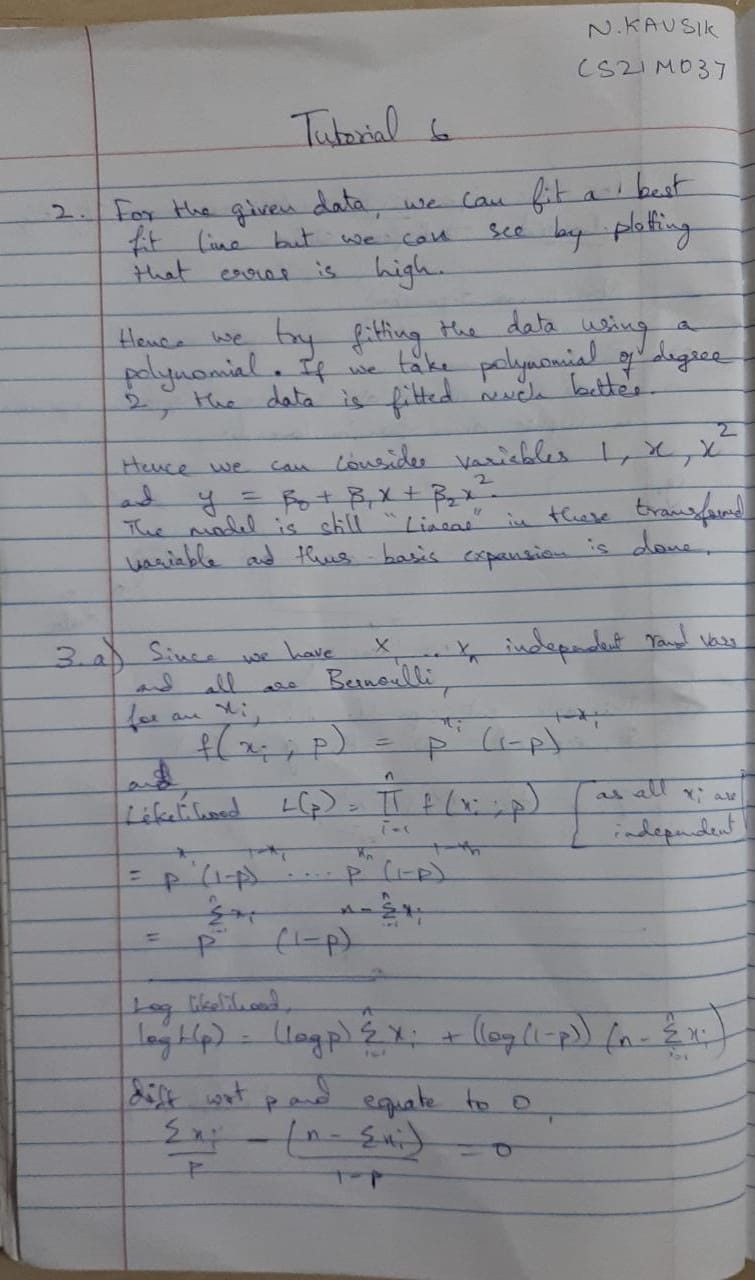 N.KAUSIK
CS21M037
Tutorial 6
2. For the given data, we can fit a best
fit line but we can see by plotting
that error is high.
Hence we try fitting the data using a
polynomial. If we take polynomial of degree
2, the data is fitted much better.
Hence we can consider variables 1, x, x²
ad y = β₀ + β₁x + β₂x².
The model is still "Linear" in these transformed
variable ad thus basis expansion is done.
3. a) Since we have x₁ .. xₙ independent rand vars
and all are Bernoulli,
for an xᵢ,
f(xᵢ ; p) = p^{xᵢ} (1-p)^{1-xᵢ}
and,
Likelihood L(p) = ∏_{i=1}^{n} f(xᵢ ; p) [as all xᵢ are
independent
= p^{x₁} (1-p)^{1-x₁} .... p^{xₙ} (1-p)^{1-xₙ}
= p^{Σ_{i=1}^{n} xᵢ} (1-p)^{n - Σ_{i=1}^{n} xᵢ}
Log likelihood,
log L(p) = (log p) Σ_{i=1}^{n} xᵢ + (log (1-p)) (n - Σ_{i=1}^{n} xᵢ)
diff wrt p and equate to 0,
Σxᵢ/p - (n - Σxᵢ)/(1-p) = 0